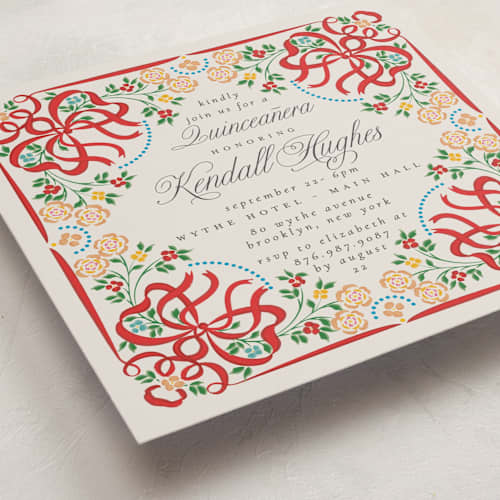 kindly
join us for a
Quinceañera
HONORING
Kendall Hughes
september 22 - 6pm
WYTHE HOTEL - MAIN HALL
80 wythe avenue
brooklyn, new york
rsvp to elizabeth at
876.987.9087
by august
22